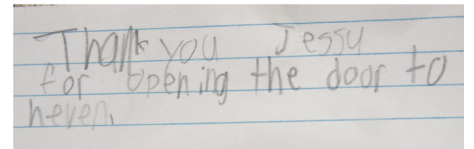 Thank you Jessy
for opening the door to
heven.